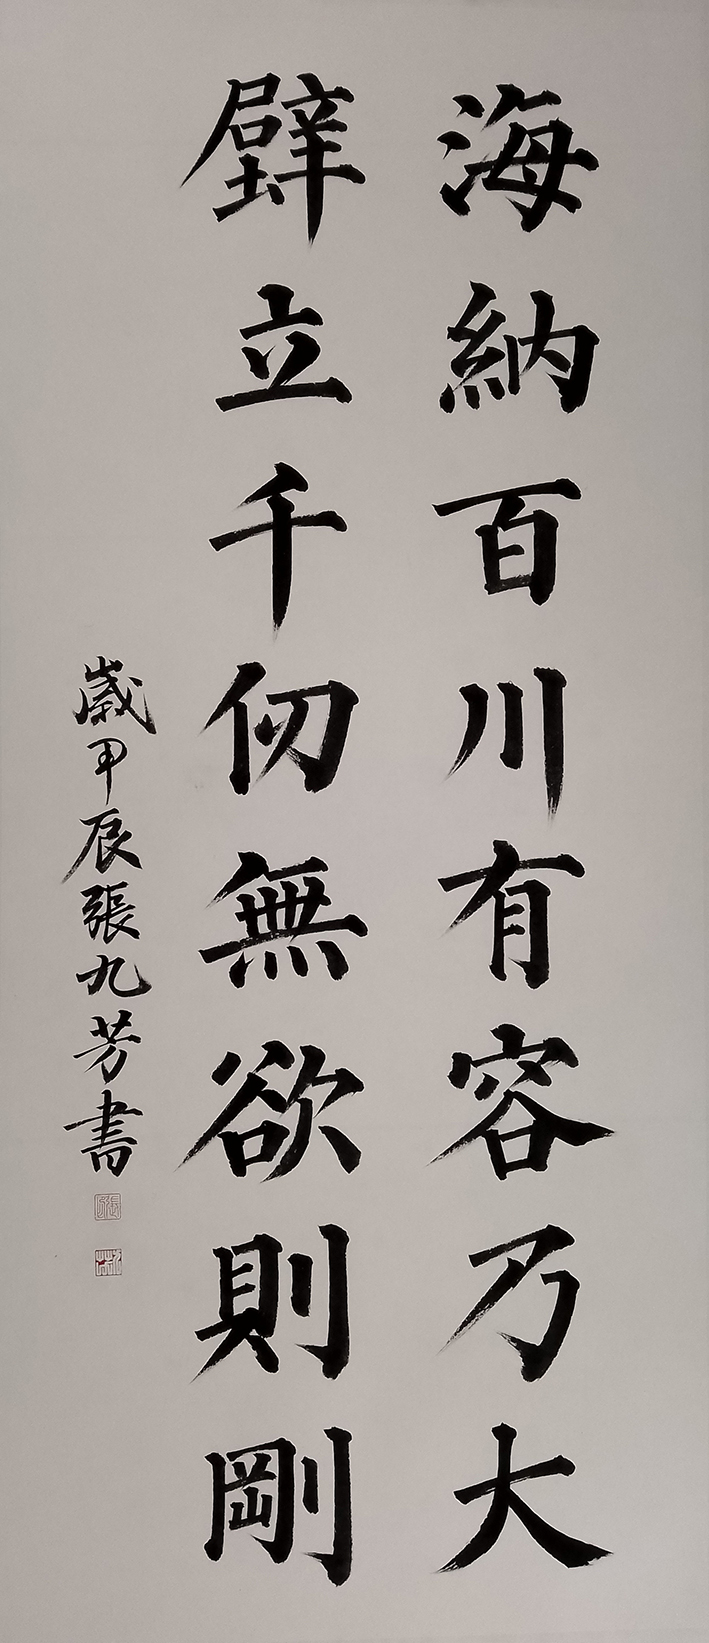 海納百川有容乃大
壁立千仞無欲則剛
歲甲辰張九芳書